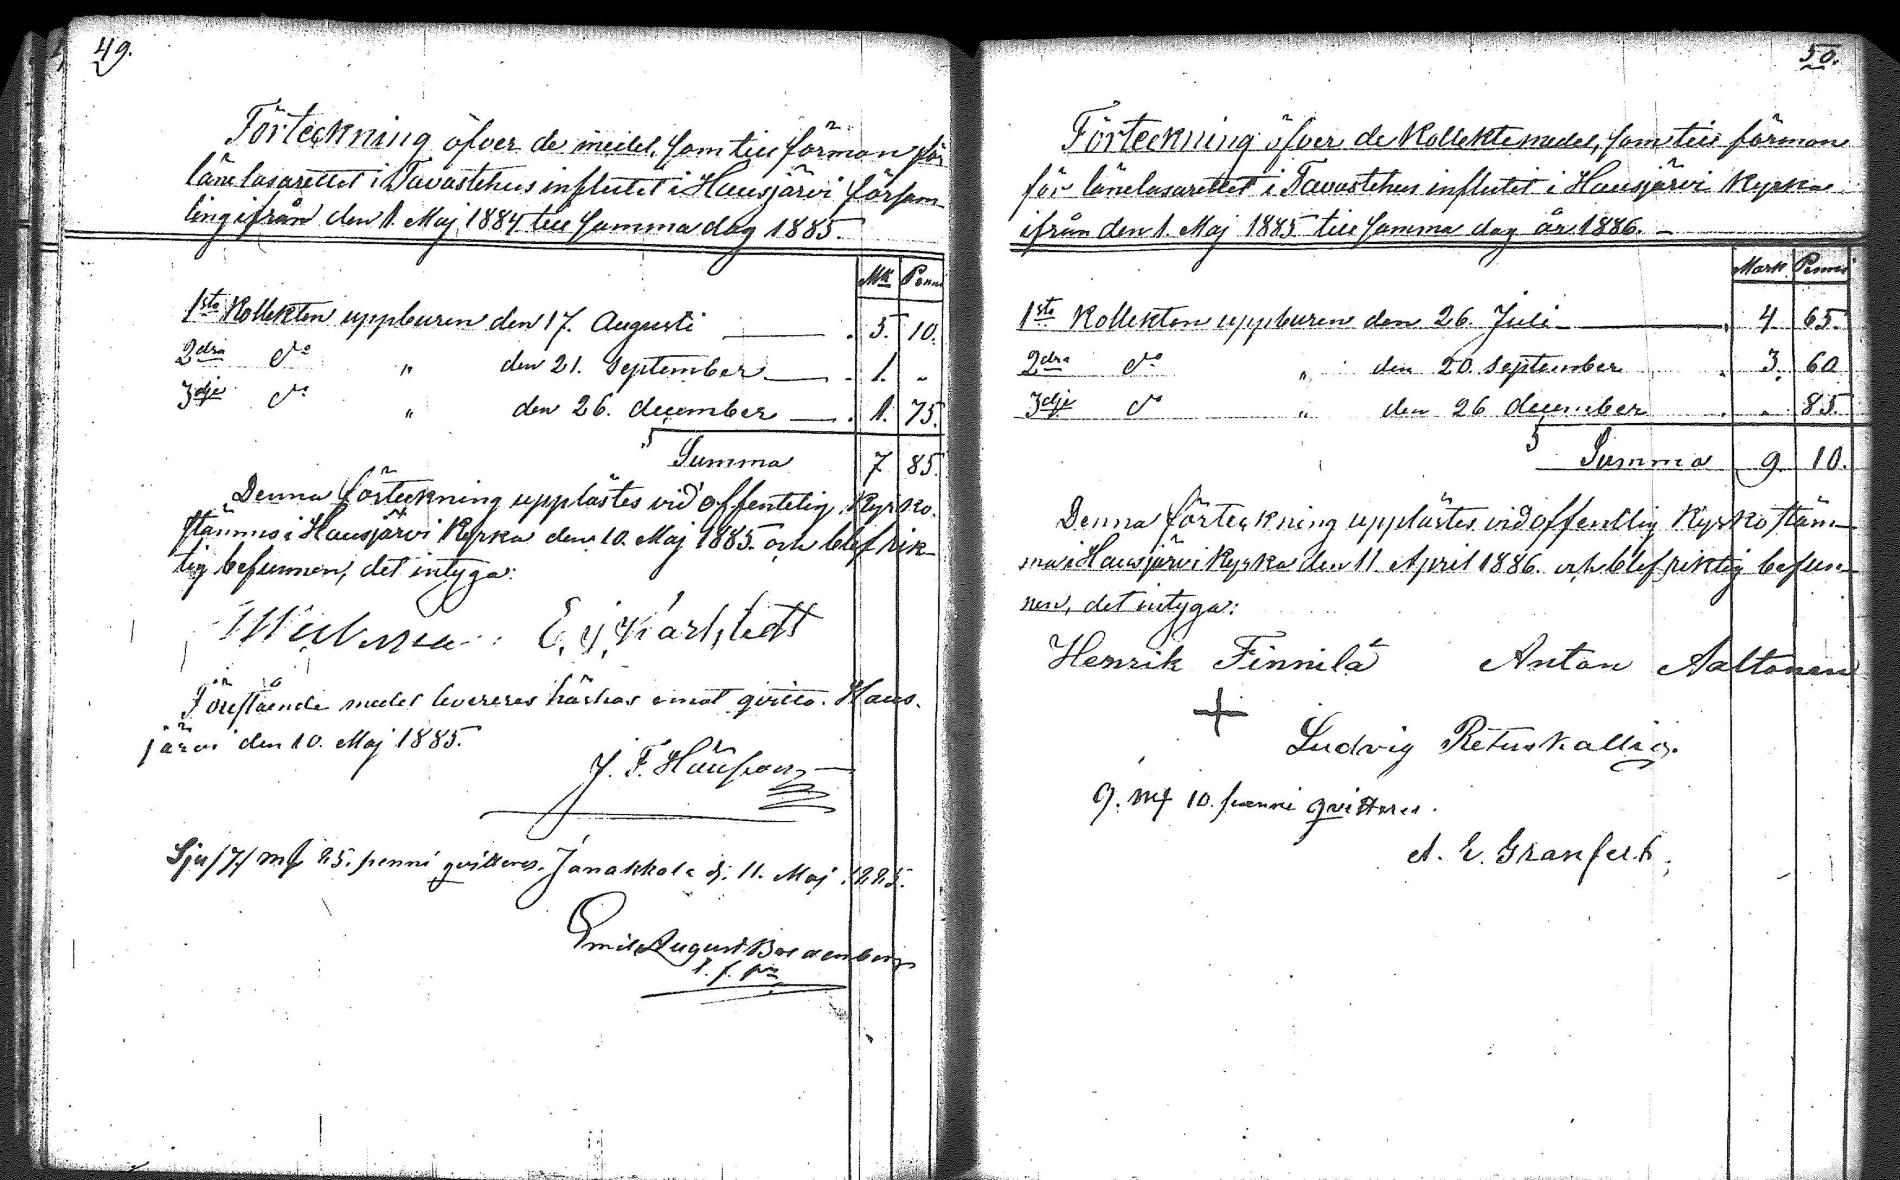 49.
Förteckning öfver de medel, som till förmon för
länelasarettet i Tavastehus influtet i Hausjärvi försam-
ling ifrån den 1. Maj 1884 till samma dag 1885.
Mk Penni
1sta Kollekten uppburen den 17. Augusti . 5. 10.
2dra do " den 21. September . 1. "
3dje do " den 26. december . 1. 75.
Summa 7 85.
Denna förteckning upplästes vid offentelig Kyrko-
stämma i Hausjärvi Kyrka den 10. Maj 1885. och blef rik-
tig befunnen, det intyga:
E. j. Karlstedt
Förestående medel levereras härhos emot qvitto. Haus-
järvi den 10. Maj 1885.
J. F.
Sju /7/ mf 85. penni qvitteras. Janakkala d. 11. Maj 1885.
Emil August
50.
Förteckning öfver de Kollektmedel, som till förmon
för länelasarettet i Tavastehus influtet i Hausjärvi Kyrka
ifrån den 1. Maj 1885 till samma dag år 1886. –
Mark Penni
1sta Kollekten uppburen den 26. Juli . 4. 65.
2dra do " den 20. september . 3. 60
3dje do " den 26 december . " 85.
Summa 9. 10.
Denna förteckning upplästes vid offentlig Kyrkostäm-
ma i Hausjärvi Kyrka den 11 April 1886. och blef riktig befun-
nen, det intyga:
Henrik Finnilä Anton Aaltonen
+
Ludvig Retuskallio.
9. mf 10. penni qvitteras.
A. E. Granfelt.